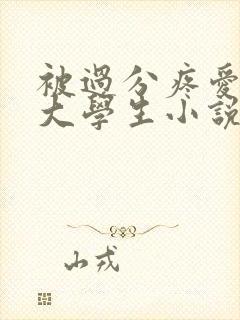 被過分疼愛
大學生小說
山戎